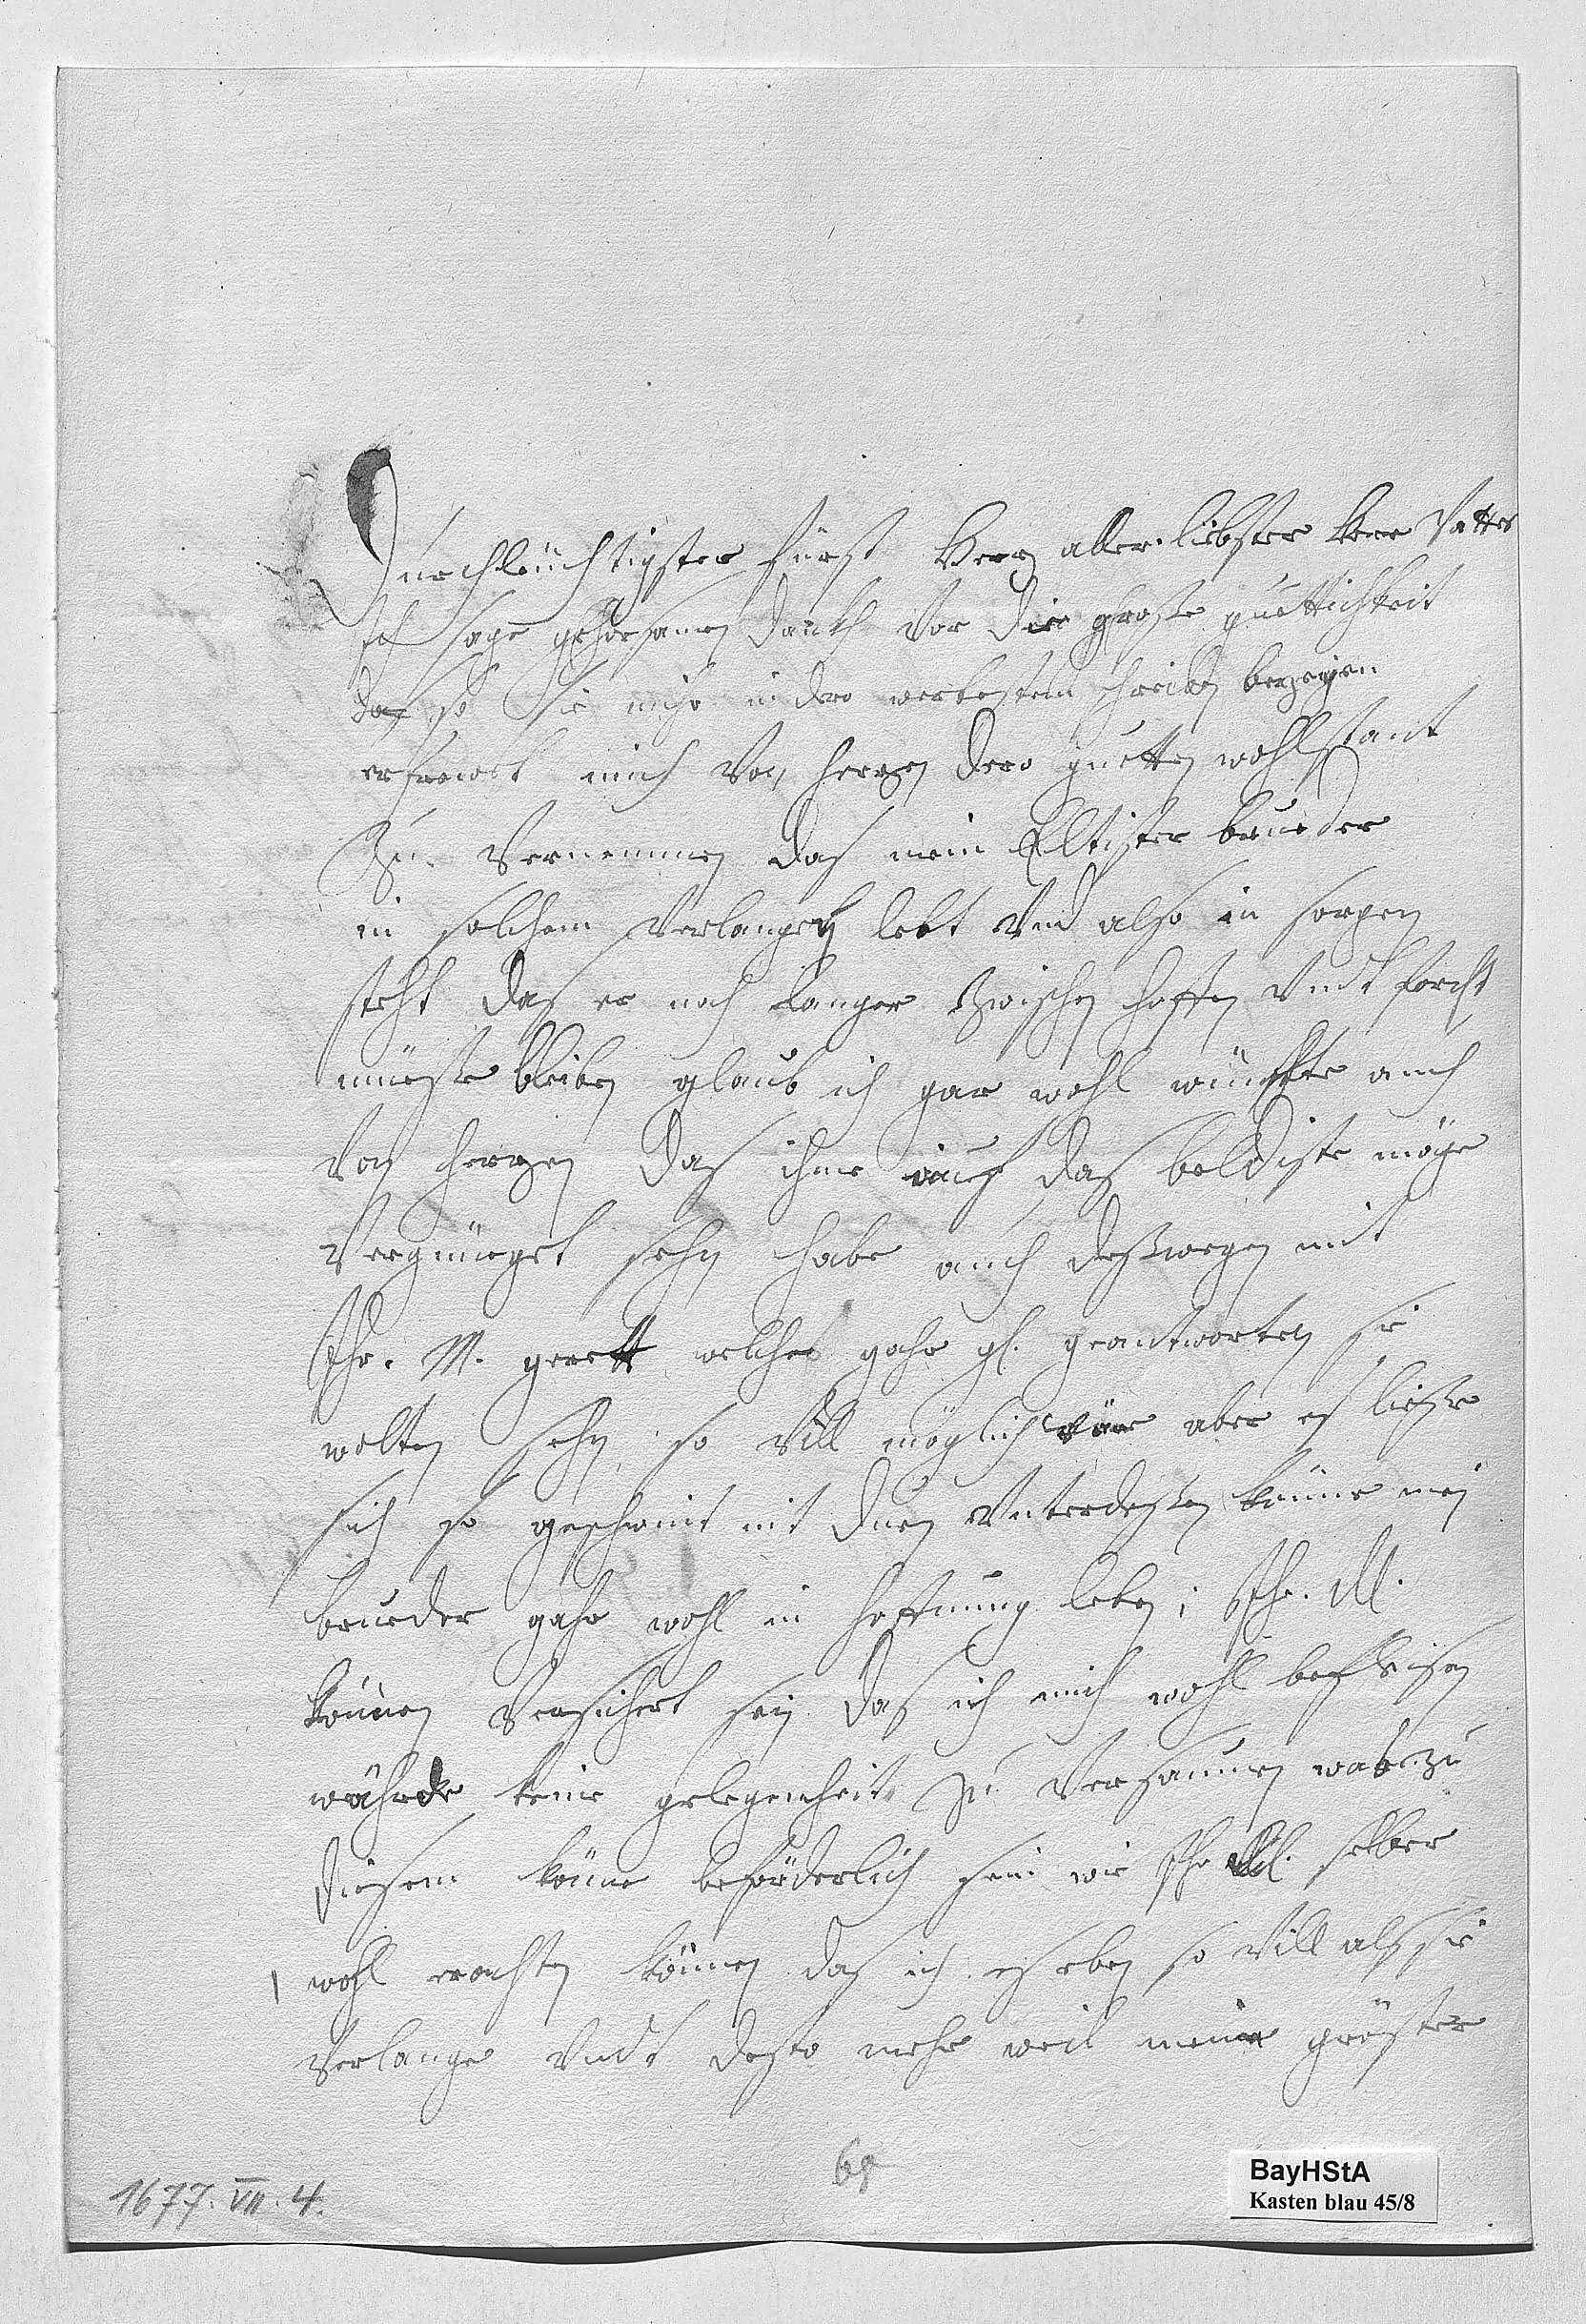 Durchleüchtigster Fürst Herz allerliebster Herr Vatter
Ich sage gehorsamen danckh vor die große guettichkeit
das so sie mihr in dero werhestem schreiben bezeigen
erfrewet mich von herzen dero gutten wohlstant
Zu vernemmen das mein Eltister brueder
in solchem verlangen lebt vnd also in sorgen
steht das er noch langer zwischen hoffen vndt forcht
müeste bleiben glaub ich gar wohl wünschte auch
von herzen das ihme auf das beldiste möge
vergnüeget sehn habe auch deßwegen mit
Ihr. M. gerett welche gahr gl. geantworten sie
wolten sehn so vill möglich wäre aber es ließe
sich so geschwint nit duen vnterdeßen könne mein
brueder gahr wohl in hoffnung leben; Ihr. Dl.
können versichert sein das ich mich wohl befleisen
währde keine gelegenheit zu versaumen was zu
diesem könne beförderlich sein wie Ihr Dl. selber
wohl erachten können das ich es eben so vill als sie
verlange vndt desto mehr weil meine gröster
69
1677. VII. 4.
BayHStA
Kasten blau 45/8